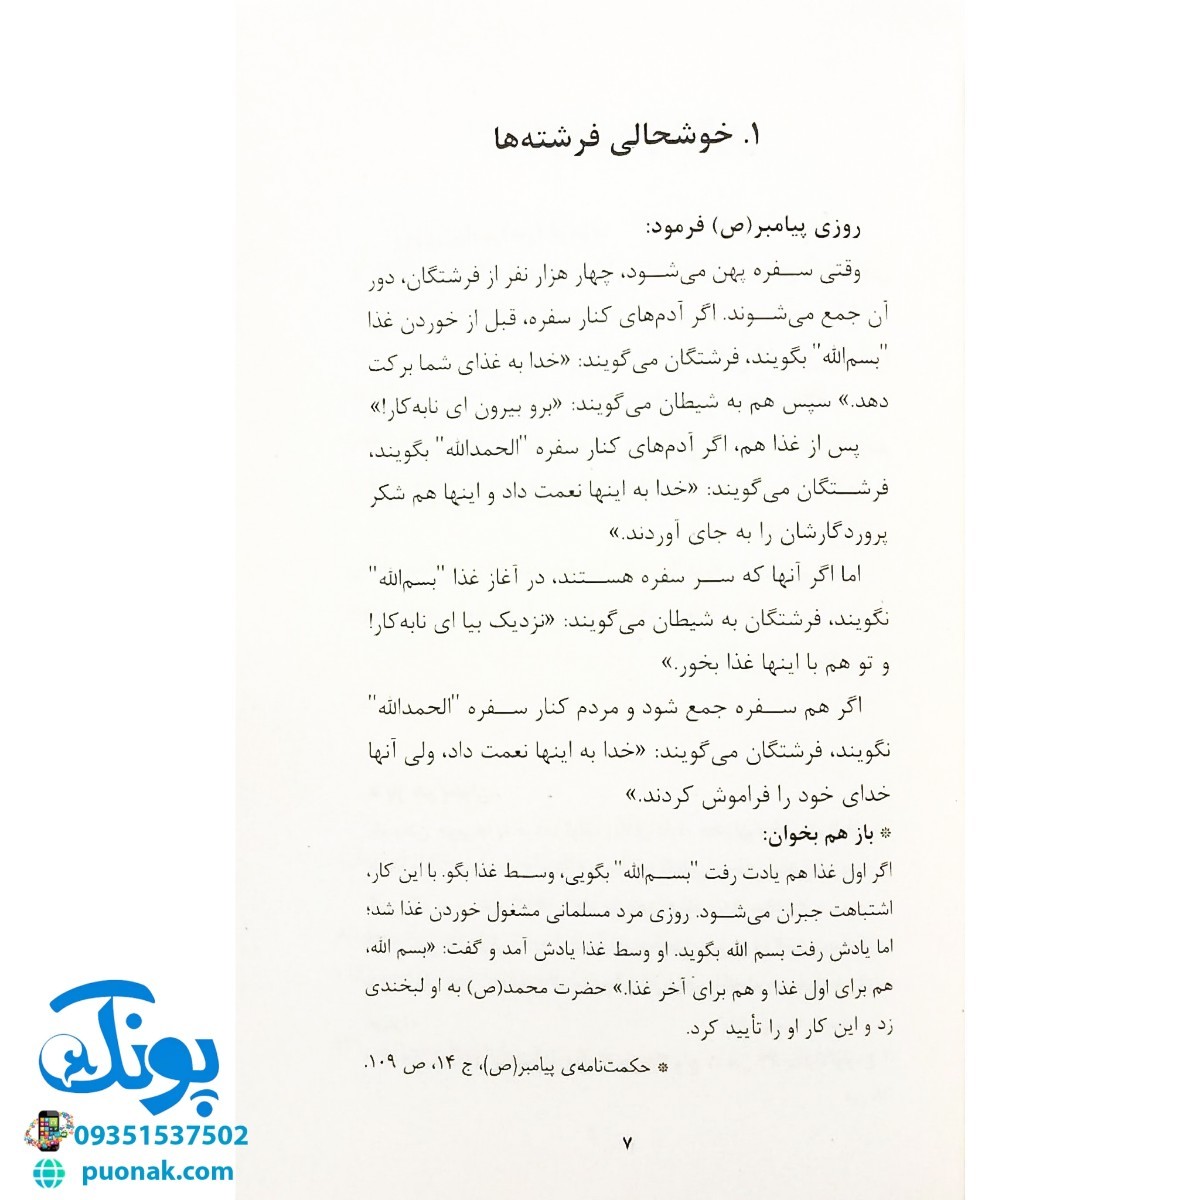 ۱. خوشحالی فرشته‌ها
روزی پیامبر(ص) فرمود:
وقتی سفره پهن می‌شود، چهار هزار نفر از فرشتگان، دور
آن جمع می‌شوند. اگر آدم‌های کنار سفره، قبل از خوردن غذا
"بسم‌الله" بگویند، فرشتگان می‌گویند: «خدا به غذای شما برکت
دهد.» سپس هم به شیطان می‌گویند: «برو بیرون ای نابه‌کار!»
پس از غذا هم، اگر آدم‌های کنار سفره "الحمدالله" بگویند،
فرشتگان می‌گویند: «خدا به اینها نعمت داد و اینها هم شکر
پروردگارشان را به جای آوردند.»
اما اگر آنها که سر سفره هستند، در آغاز غذا "بسم‌الله"
نگویند، فرشتگان به شیطان می‌گویند: «نزدیک بیا ای نابه‌کار!
و تو هم با اینها غذا بخور.»
اگر هم سفره جمع شود و مردم کنار سفره "الحمدالله"
نگویند، فرشتگان می‌گویند: «خدا به اینها نعمت داد، ولی آنها
خدای خود را فراموش کردند.»
❊ باز هم بخوان:
اگر اول غذا هم یادت رفت "بسم‌الله" بگویی، وسط غذا بگو. با این کار،
اشتباهت جبران می‌شود. روزی مرد مسلمانی مشغول خوردن غذا شد؛
اما یادش رفت بسم الله بگوید. او وسط غذا یادش آمد و گفت: «بسم الله،
هم برای اول غذا و هم برای آخر غذا.» حضرت محمد(ص) به او لبخندی
زد و این کار او را تأیید کرد.
❊ حکمت‌نامه‌ی پیامبر(ص)، ج ۱۴، ص ۱۰۹.
۷
پونک
09351537502
puonak.com